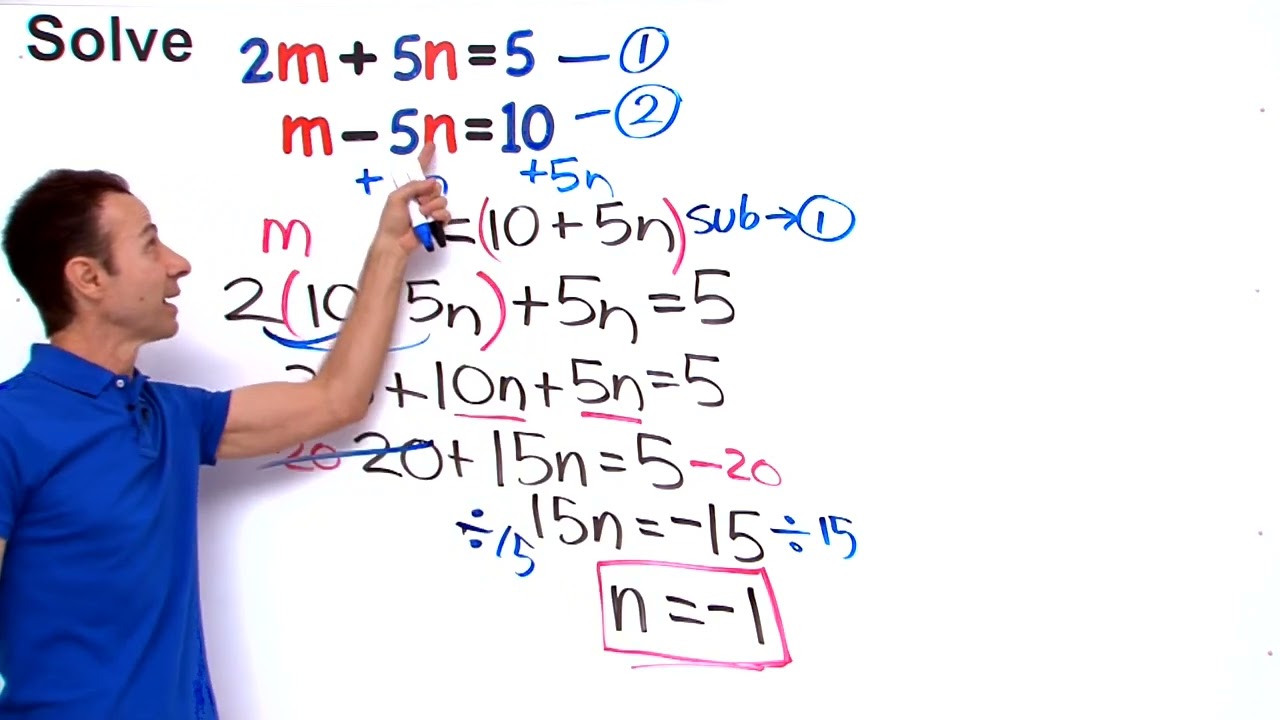 Solve 2m + 5n = 5 — ①
m – 5n = 10 – ②
+ n +5n
m = (10 + 5n) sub → ①
2(10 5n) + 5n = 5
+ 10n + 5n = 5
20 20 + 15n = 5 – 20
÷15 15n = –15 ÷ 15
n = –1